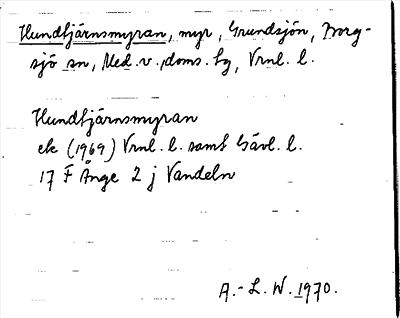 Hundtjärnsmyran, myr, Grundsjön, Borg-
sjö sn, Med. v. doms. tg, Vrnl. l.
Hundtjärnsmyran
ek (1969) Vrnl. l. samt Gävl. l.
17 F Ånge 2 j Vandeln
A.-L. W. 1970.